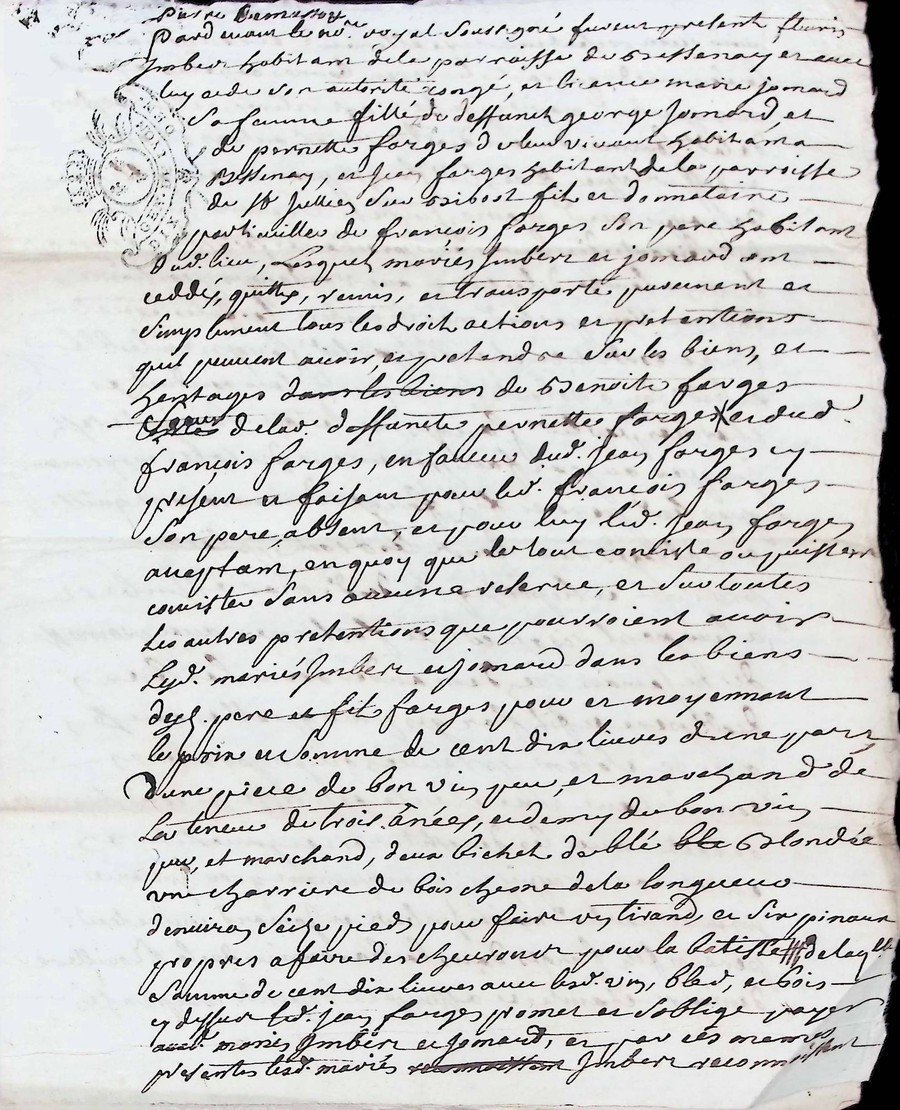 Pardevant le no.re royal soussigné furent present fleuris
Imbert habitant de la parroisse de Bessenay et avec
luy et de son autorité congé, et licence marie jomard
Sa femme fille de deffunct george Jomard, et
de pernette farges de leur vivant habitant a
Bessenay, et Jean farges habitant de la parroisse
de St Jullien sur Bibost fils et donnataire
particullier de françois farges Son pere habitant
dud. lieu, Lesquels mariés Imbert et jomard ont
ceddés, quittés, remis, et transporté purement et
Simplement tous les droit actions et pretentions
quil peuvent avoir, et pretendre Sur les biens, et
heritages dans les biens de Benoite farges
Soeur de lad. deffuncte pernette farges et dud.
françois farges, en faveur dud. jean farges cy
present et faisant pour led. françois farges
Son pere absent, et pour luy led. jean farges
acceptant, en quoy que le tout consiste ou puissent
consister Sans aucune reserve, et Sur toutes
Les autres pretentions que pourroient avoir
Lesd. mariés Imbert et jomard dans les biens
desd. pere et fils farges pour et moyennant
le prix et somme de cent dix livres d'une part
d'une piece de bon vin pur, et marchand de
La teneur de trois anées, et demy de bon vin
pur, et marchand, deux bichet de blé ble Blondée
un charriere de bois chesne de la longueur
d'environ Seize pied pour faire un tirand, et Six pinaux
propres a faire des cheurons pour la batisse de laq.lle
Somme de cent dix livres avec lesd. vin, bled, et bois
cy dessus led. jean farges promet et s'oblige payer
auxd. mariés Imbert et Jomard, et par ces memes
presentes lesd. mariés reconnoissent Imbert reconnoissent